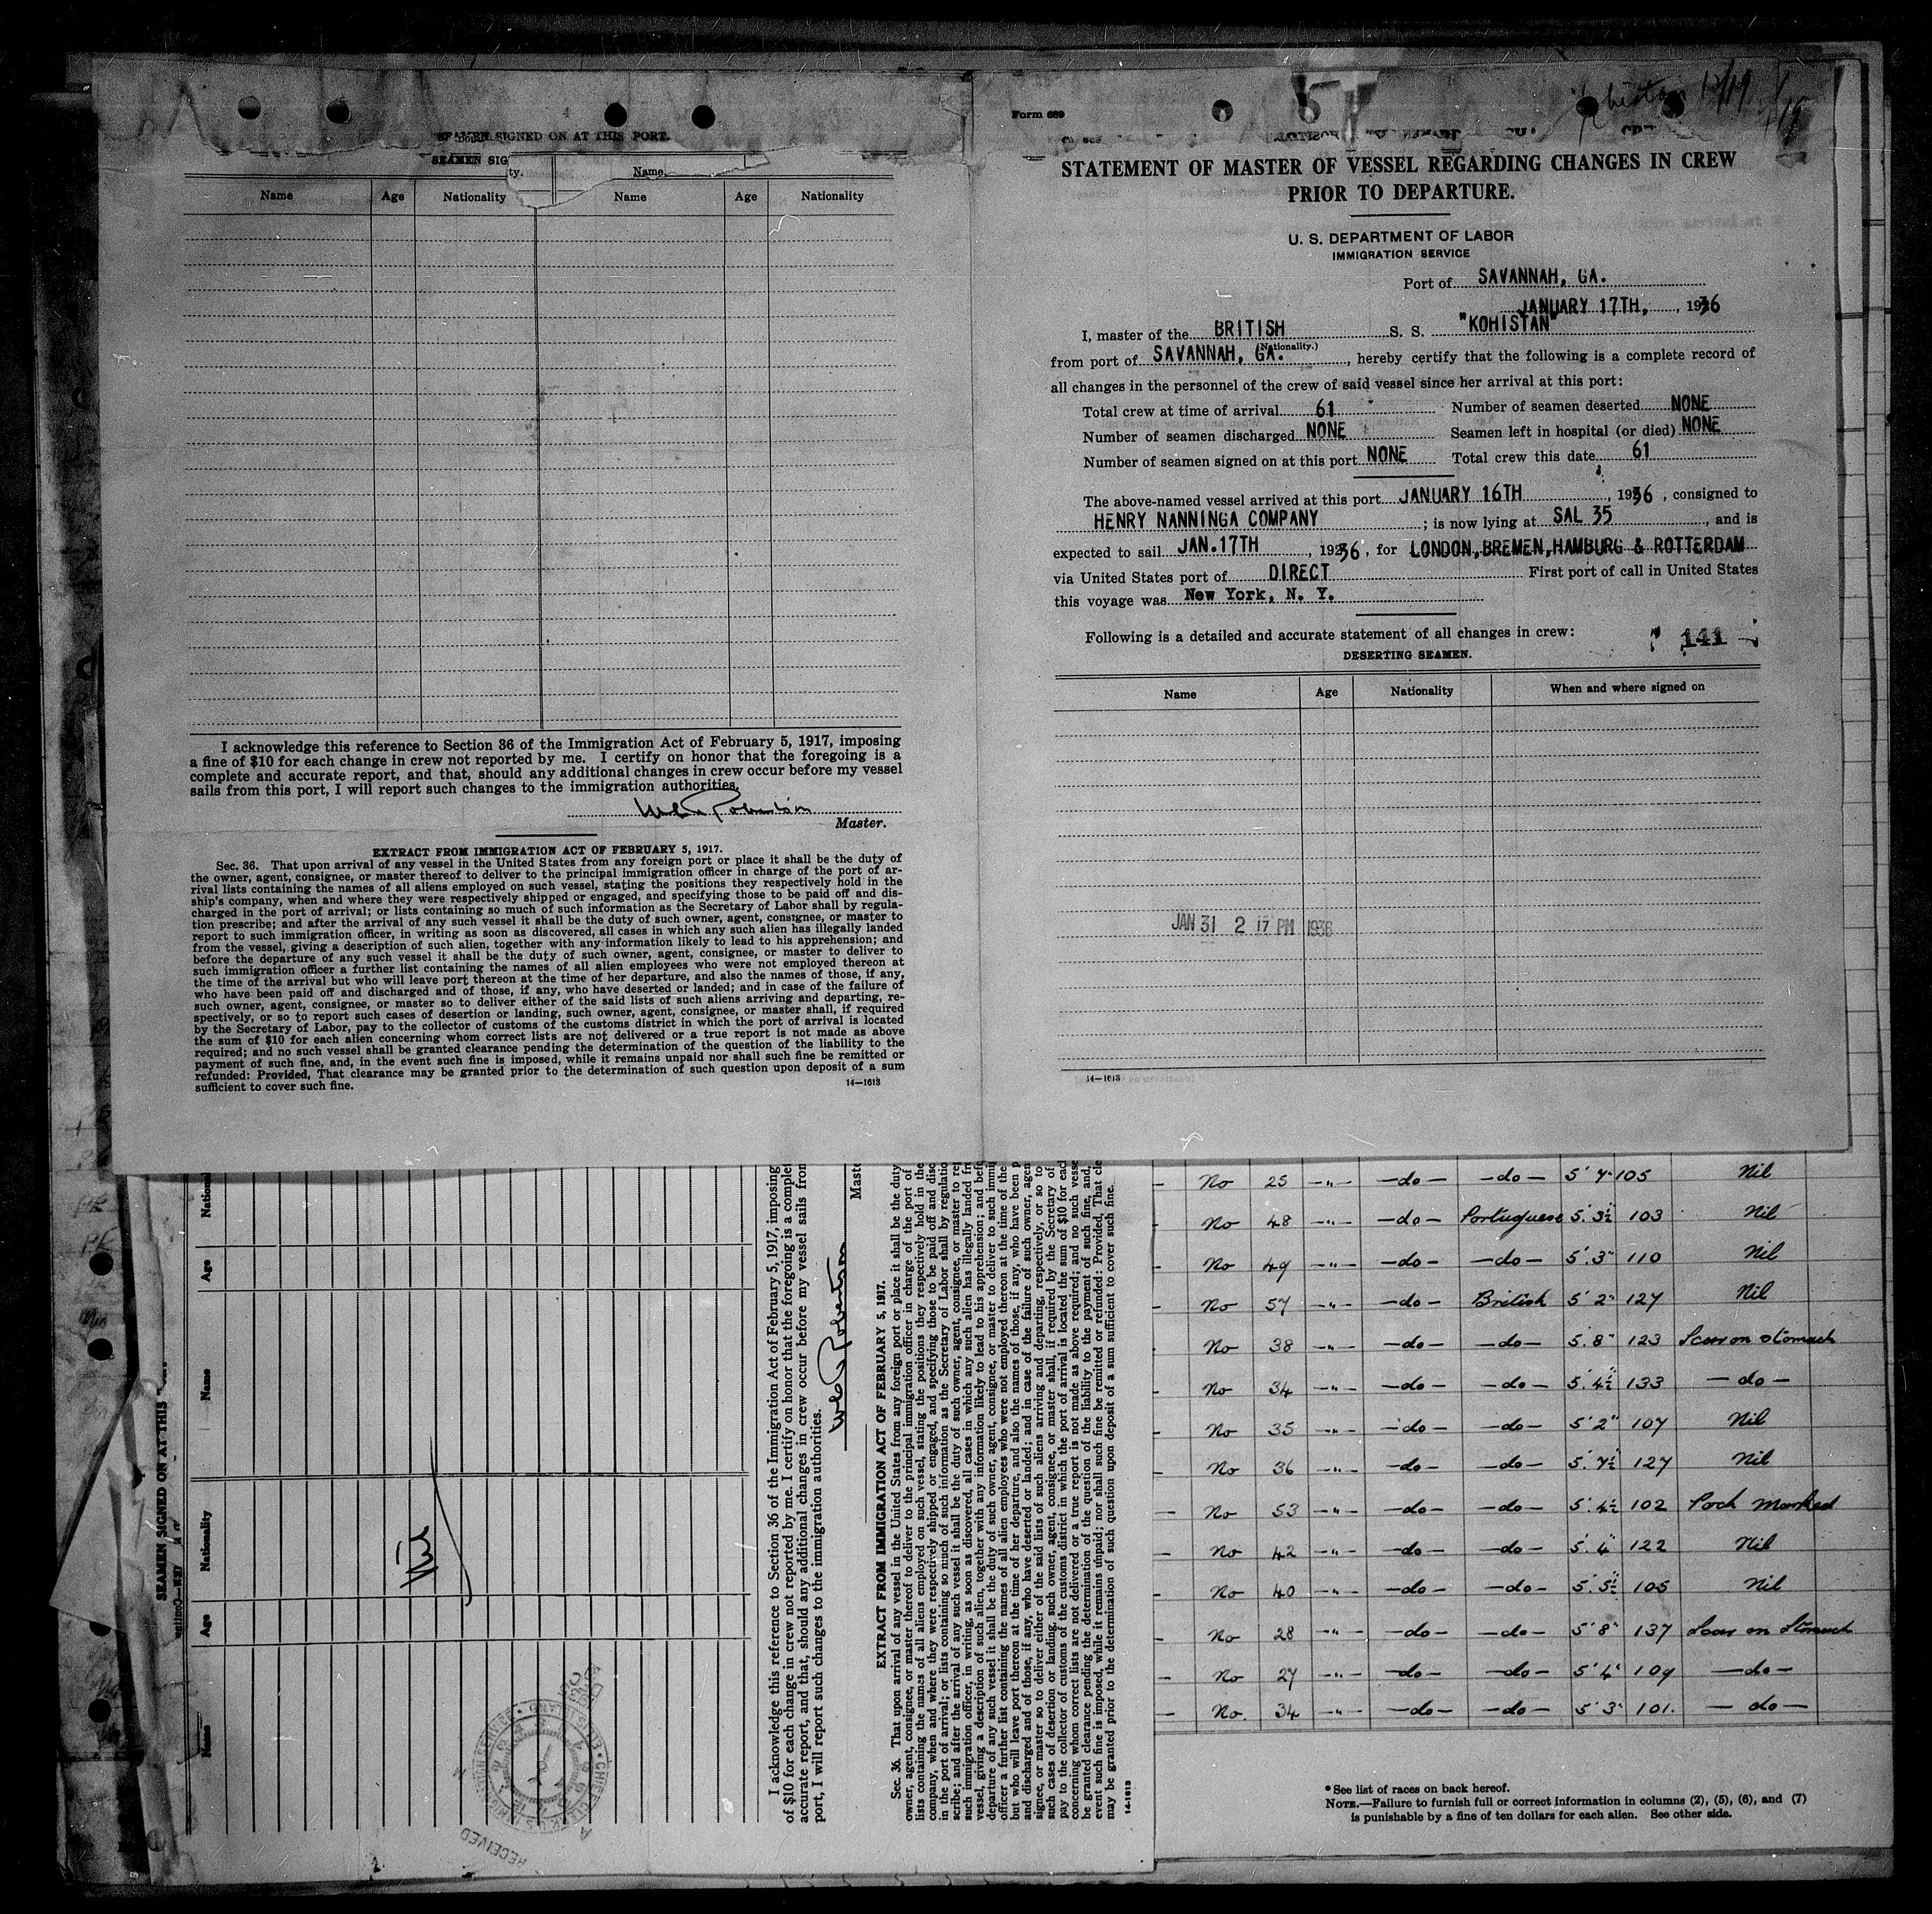 4
SEAMEN SIGNED ON AT THIS PORT.
SEAMEN SIG
ty. Name
Name Age Nationality Name Age Nationality
I acknowledge this reference to Section 36 of the Immigration Act of February 5, 1917, imposing
a fine of $10 for each change in crew not reported by me. I certify on honor that the foregoing is a
complete and accurate report, and that, should any additional changes in crew occur before my vessel
sails from this port, I will report such changes to the immigration authorities.
Robertson
Master.
EXTRACT FROM IMMIGRATION ACT OF FEBRUARY 5, 1917.
Sec. 36. That upon arrival of any vessel in the United States from any foreign port or place it shall be the duty of
the owner, agent, consignee, or master thereof to deliver to the principal immigration officer in charge of the port of ar-
rival lists containing the names of all aliens employed on such vessel, stating the positions they respectively hold in the
ship's company, when and where they were respectively shipped or engaged, and specifying those to be paid off and dis-
charged in the port of arrival; or lists containing so much of such information as the Secretary of Labor shall by regula-
tion prescribe; and after the arrival of any such vessel it shall be the duty of such owner, agent, consignee, or master to
report to such immigration officer, in writing as soon as discovered, all cases in which any such alien has illegally landed
from the vessel, giving a description of such alien, together with any information likely to lead to his apprehension; and
before the departure of any such vessel it shall be the duty of such owner, agent, consignee, or master to deliver to
such immigration officer a further list containing the names of all alien employees who were not employed thereon at
the time of the arrival but who will leave port thereon at the time of her departure, and also the names of those, if any,
who have been paid off and discharged and of those, if any, who have deserted or landed; and in case of the failure of
such owner, agent, consignee, or master so to deliver either of the said lists of such aliens arriving and departing, re-
spectively, or so to report such cases of desertion or landing, such owner, agent, consignee, or master shall, if required
by the Secretary of Labor, pay to the collector of customs of the customs district in which the port of arrival is located
the sum of $10 for each alien concerning whom correct lists are not delivered or a true report is not made as above
required; and no such vessel shall be granted clearance pending the determination of the question of the liability to the
payment of such fine, and, in the event such fine is imposed, while it remains unpaid nor shall such fine be remitted or
refunded: Provided, That clearance may be granted prior to the determination of such question upon deposit of a sum
sufficient to cover such fine.
14—1613
Form 689
5
STATEMENT OF MASTER OF VESSEL REGARDING CHANGES IN CREW
PRIOR TO DEPARTURE.
U. S. DEPARTMENT OF LABOR
IMMIGRATION SERVICE
Port of SAVANNAH, GA.
JANUARY 17TH, , 1936
I, master of the BRITISH S. S. "KOHISTAN"
(Nationality.)
from port of SAVANNAH, GA. , hereby certify that the following is a complete record of
all changes in the personnel of the crew of said vessel since her arrival at this port:
Total crew at time of arrival 61 Number of seamen deserted NONE
Number of seamen discharged NONE Seamen left in hospital (or died) NONE
Number of seamen signed on at this port NONE Total crew this date 61
The above-named vessel arrived at this port JANUARY 16TH , 1936 , consigned to
HENRY NANNINGA COMPANY ; is now lying at SAL 35 , and is
expected to sail JAN.17TH , 1936 , for LONDON,BREMEN,HAMBURG & ROTTERDAM
via United States port of DIRECT First port of call in United States
this voyage was New York, N. Y.
Following is a detailed and accurate statement of all changes in crew: 141
DESERTING SEAMEN.
Name Age Nationality When and where signed on
JAN 31 2 17 PM 1936
14—1613
SEAMEN SIGNED ON AT THIS
Name Age Nationality Name Age National
Nil
I acknowledge this reference to Section 36 of the Immigration Act of February 5, 1917, imposing
of $10 for each change in crew not reported by me. I certify on honor that the foregoing is a complet
accurate report, and that, should any additional changes in crew occur before my vessel sails from
port, I will report such changes to the immigration authorities.
Robertson
Maste
EXTRACT FROM IMMIGRATION ACT OF FEBRUARY 5, 1917.
Sec. 36. That upon arrival of any vessel in the United States from any foreign port or place it shall be the duty
owner, agent, consignee, or master thereof to deliver to the principal immigration officer in charge of the port of
lists containing the names of all aliens employed on such vessel, stating the positions they respectively hold in the
company, when and where they were respectively shipped or engaged, and specifying those to be paid off and disc
in the port of arrival; or lists containing so much of such information as the Secretary of Labor shall by regulatio
scribe; and after the arrival of any such vessel it shall be the duty of such owner, agent, consignee, or master to re
such immigration officer, in writing, as soon as discovered, all cases in which any such alien has illegally landed fr
vessel, giving a description of such alien, together with any information likely to lead to his apprehension; and bef
departure of any such vessel it shall be the duty of such owner, agent, consignee, or master to deliver to such immi
officer a further list containing the names of all alien employees who were not employed thereon at the time of the
but who will leave port thereon at the time of her departure, and also the names of those, if any, who have been p
and discharged and of those, if any, who have deserted or landed; and in case of the failure of such owner, agen
signee, or master so to deliver either of the said lists of such aliens arriving and departing, respectively, or so to
such cases of desertion or landing, such owner, agent, consignee, or master shall, if required by the Secretary of
pay to the collector of customs of the customs district in which the port of arrival is located the sum of $10 for each
concerning whom correct lists are not delivered or a true report is not made as above required; and no such vesse
be granted clearance pending the determination of the question of the liability to the payment of such fine, and,
event such fine is imposed, while it remains unpaid; nor shall such fine be remitted or refunded: Provided, That cle
may be granted prior to the determination of such question upon deposit of a sum sufficient to cover such fine.
14-1613
RECEIVED
No 25 —"— —do— —do— 5' 7" 105 Nil
No 48 —"— —do— Portuguese 5' 3½ 103 Nil
No 49 —"— —do— —do— 5' 3" 110 Nil
No 57 —"— —do— British 5' 2" 127 Nil
No 38 —"— —do— —do— 5' 8" 123 Scar on stomach
No 34 —"— —do— —do— 5' 4½ 133 —do—
No 35 —"— —do— —do— 5' 2" 107 Nil
No 36 —"— —do— —do— 5' 7½ 127 Nil
No 53 —"— —do— —do— 5' 4½ 102 Pock marked
No 42 —"— —do— —do— 5' 4" 122 Nil
No 40 —"— —do— —do— 5' 5½ 105 Nil
No 28 —"— —do— —do— 5' 8" 137 Scar on stomach
No 27 —"— —do— —do— 5' 4" 109 —do—
No. 34 —"— —do— —do— 5' 3" 101. —do—
* See list of races on back hereof.
NOTE.—Failure to furnish full or correct information in columns (2), (5), (6), and (7)
is punishable by a fine of ten dollars for each alien. See other side.